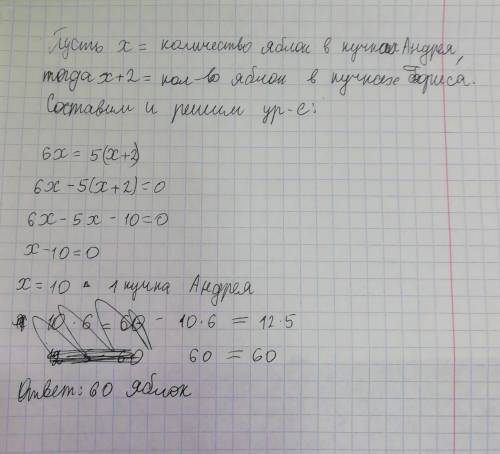 Пусть x = количество яблок в кучках Андрея,
тогда x+2 = кол-во яблок в кучках Бориса.
Составим и решим ур-е:
6x = 5(x+2)
6x-5(x+2)=0
6x-5x-10=0
x-10=0
x=10 - 1 кучка Андрея
10·6=60 - 10·6 = 12·5
60 60 = 60
Ответ: 60 яблок